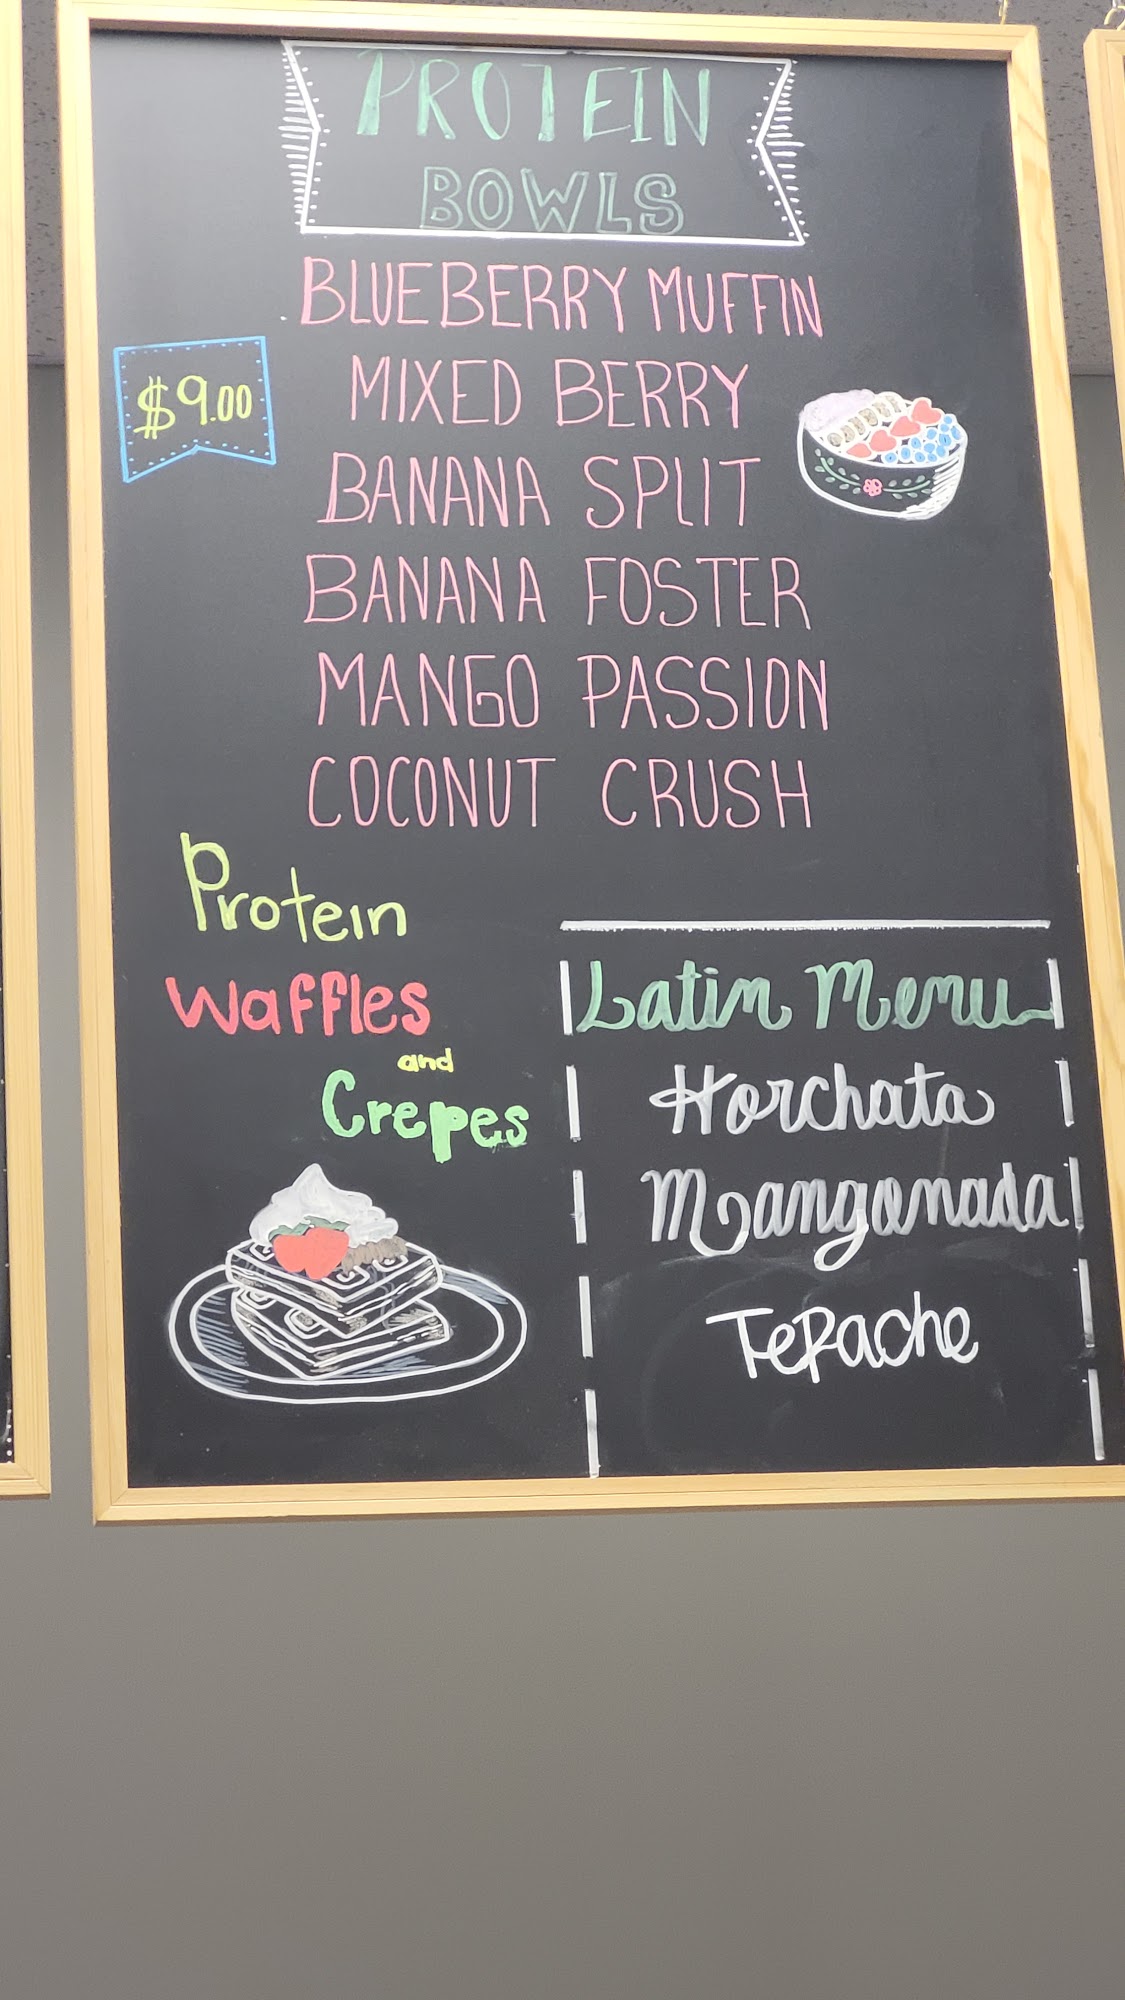 PROTEIN
BOWLS
BLUEBERRY MUFFIN
$9.00
MIXED BERRY
BANANA SPLIT
BANANA FOSTER
MANGO PASSION
COCONUT CRUSH
Protein
Waffles
and
Crepes
Latin Menu
Horchata
Mangonada
Tepache